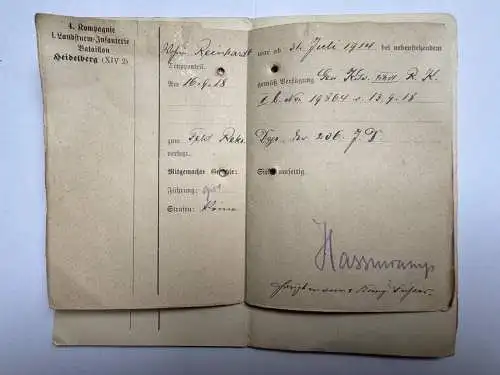 4. Kompagnie
1. Landsturm-Infanterie
Bataillon
Heidelberg (XIV 2)
Reinhardt war ab 31. Juli 1914 bei nebenstehendem
Truppenteil. gemäß Verfügung Gen. Kdo. R. K.
Am 16.9.18 No 19864 v. 13.9.18
zum Feld Rekr. Dep. der 206. J. D.
versetzt.
Mitgemachte Gefechte: Siehe umseitig.
Führung: gut
Strafen: keine
Hauptmann u. Komp. Führer.